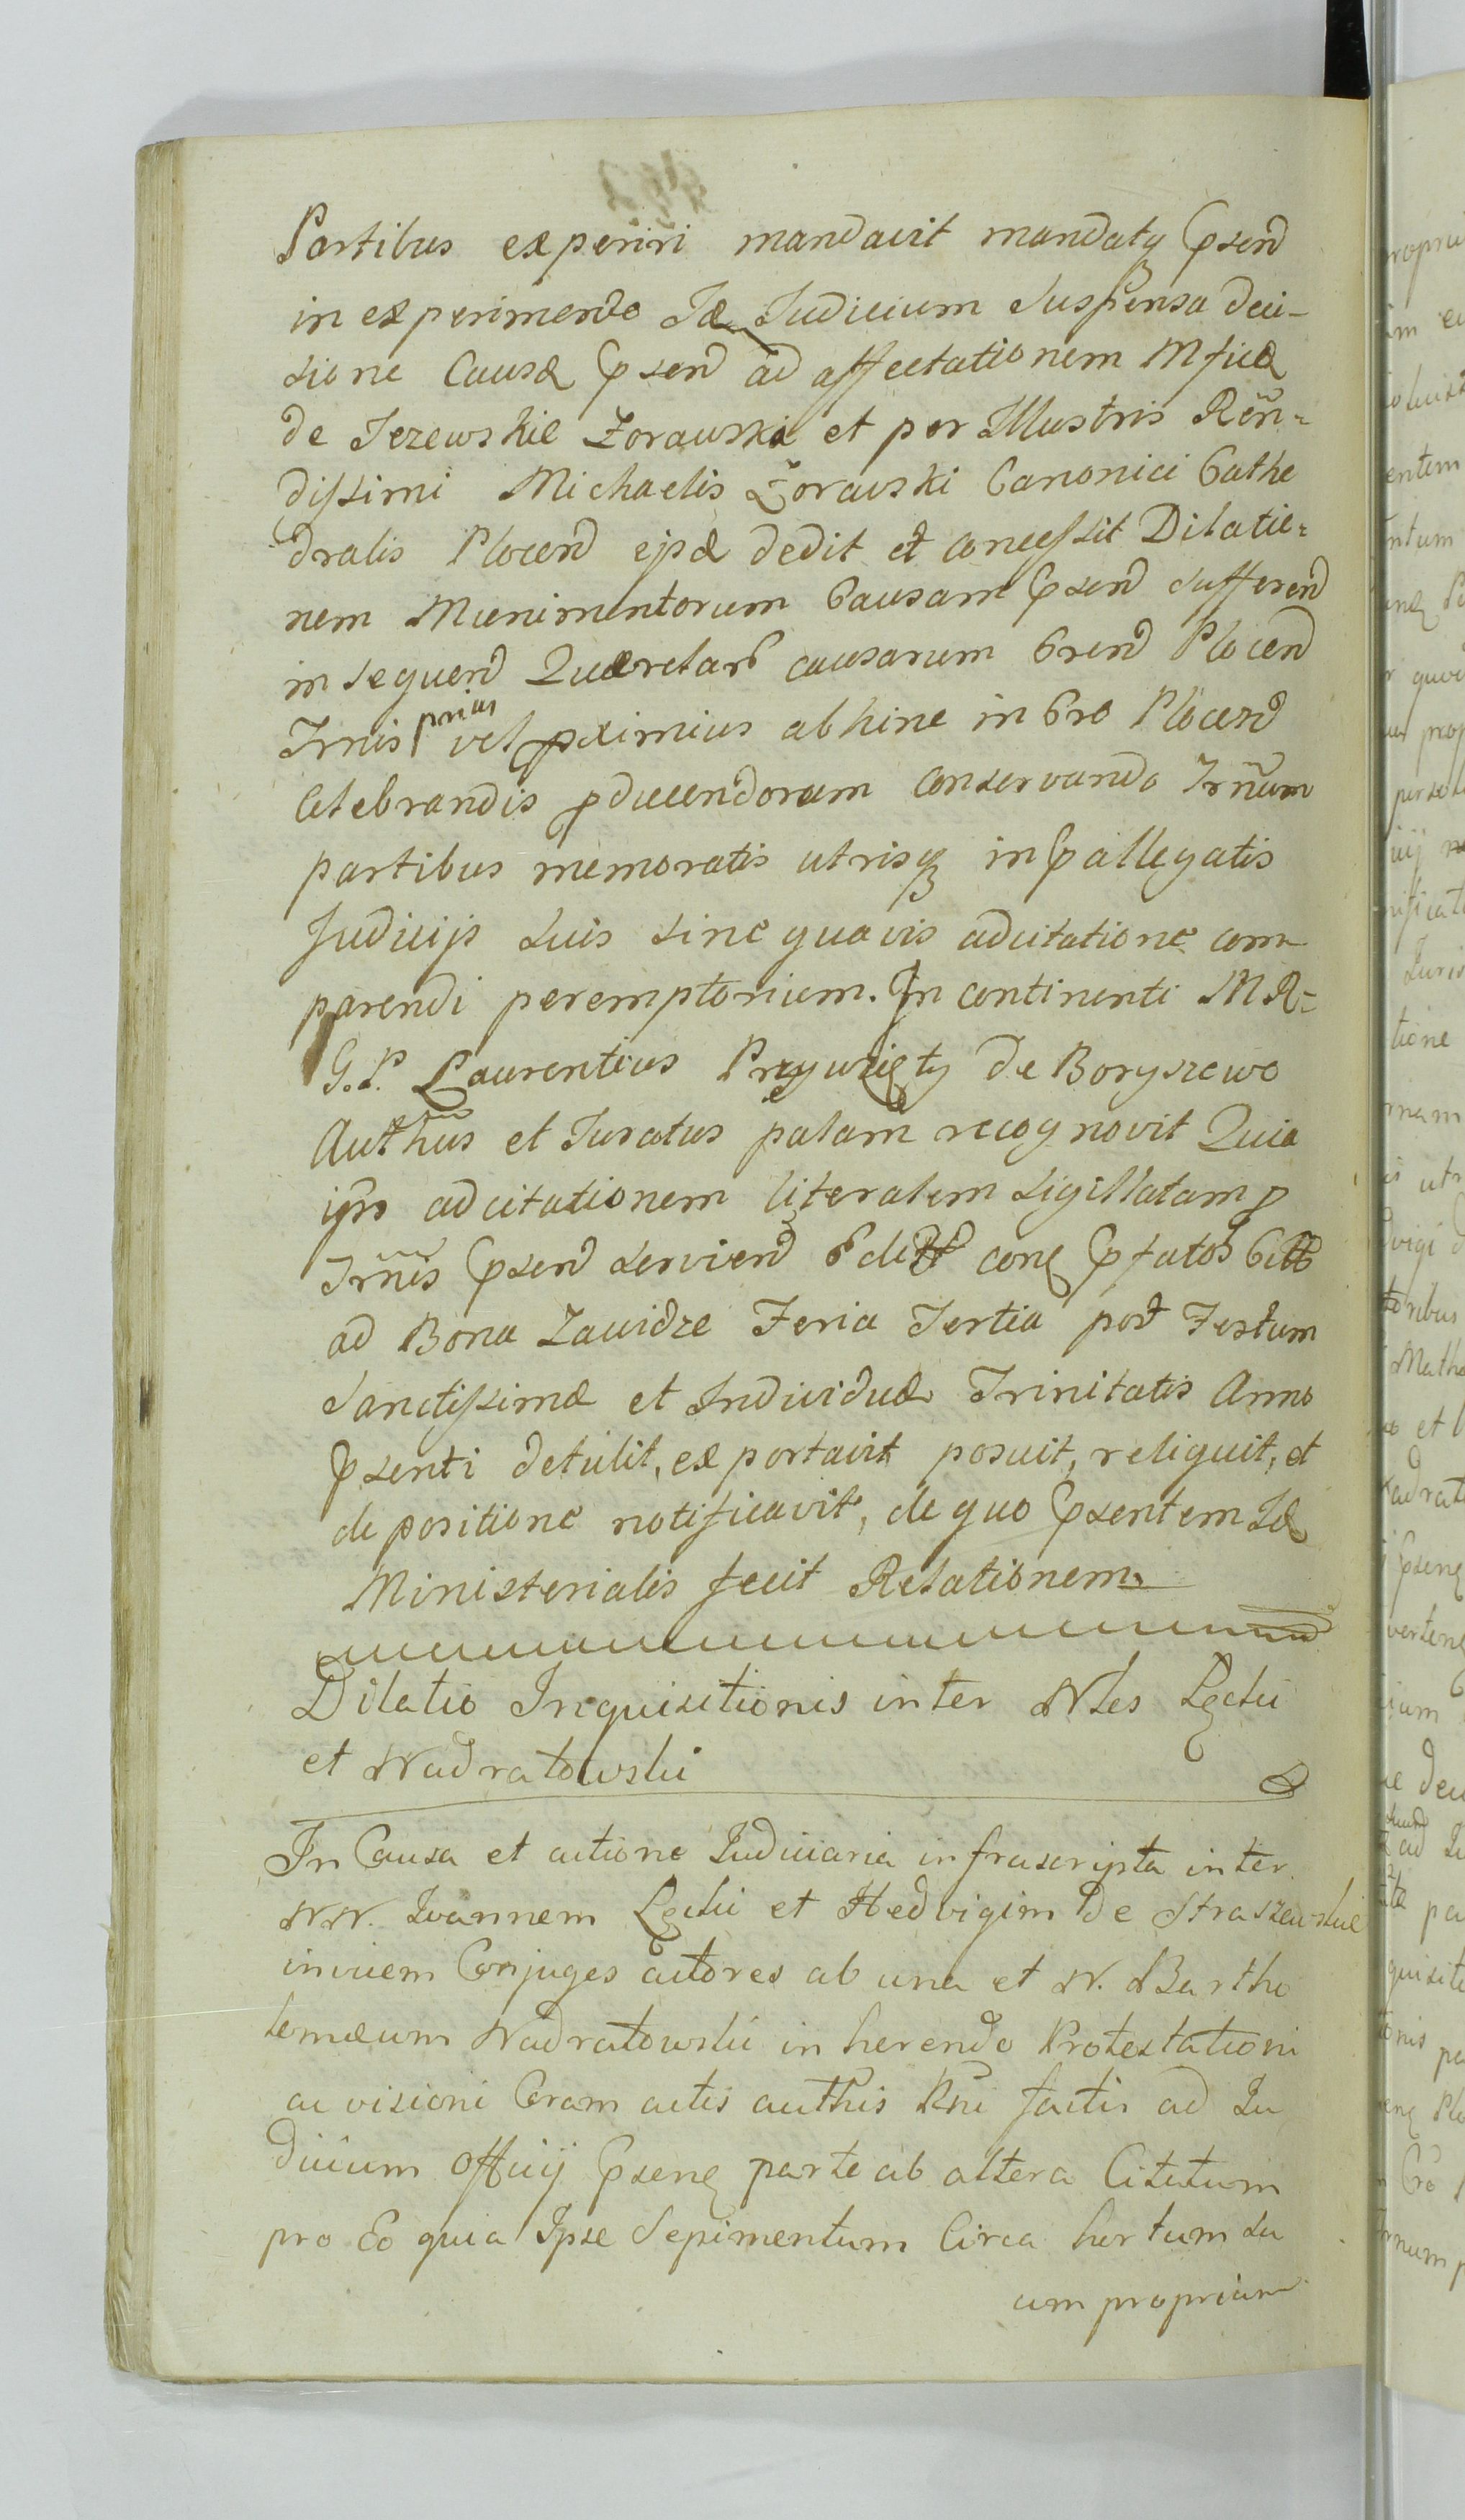 Partibus experiri mandavit mandatq Psend
in experimendo Id Judicium suspensa deci-
sione Causæ Psend ad affectationem Mficæ
de Jezewskie Zorawska et per Illustris Ren-
dissimi Michaelis Zorawski Canonici Cathe
dralis Plocend ejsd dedit et concessit Dilatio-
nem Munimentorum Causam Psend sufferend
in sequend Querelar causarum Crend Plocend
Trnis prius vel proximius abhinc in Cro Plocend
Celebrandis pducendorum conservando Trnum
partibus memoratis utrisq in Pallegatis
Judicijs suis sine quavis adcitatione com-
parendi peremptorium. In continenti MR-
G.P. Laurentius Przywzięty de Boryszewo
Authus et Juratus palam recognovit Quia
ips adcitationem literalem sigillatam p
Trnis Psend serviend conq Pfatos Citt
ad Bona Zawidze Feria Tertia post Festum
Sanctissimæ et Individuæ Trinitatis Anno
Psenti detulit, exportavit posuit, reliquit, et
de positione notificavit, de quo Psentem Id
Ministerialis fecit Relationem
Dilatio Inquisitionis inter Nles Łęcki
et Nadratowski
In Causa et actione Judiciaria infrascripta inter
NN. Joannem Łęcki et Hedvigim de Straszewskie
invicem Conjuges actores ab una et N. Bartho
lomæum Nadratowski inherendo Protestationi
ac visioni Coram actis authis Rni factis ad Ju
dicium Officij Psenq parte ab altera Citatum
pro Eo quia Ipse Sepimentum Circa hortum su
um proprium